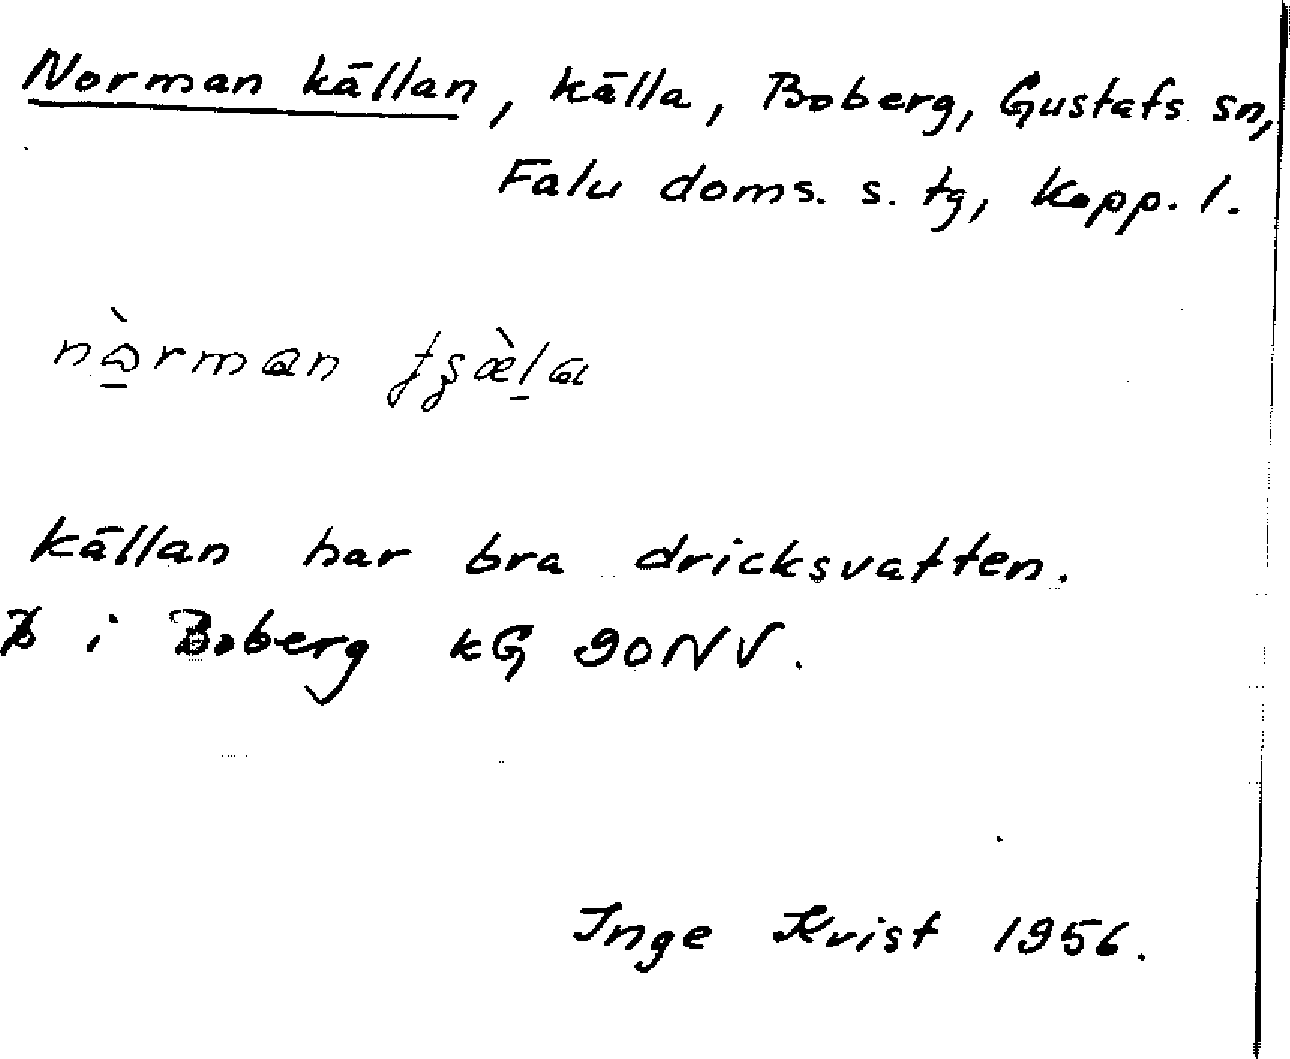 Norman källan, källa, Boberg, Gustafs sn,
Falu doms. s. tg, Kopp. l.
Källan har bra dricksvatten.
i Boberg kG 90NV.
Inge Krist 1956.